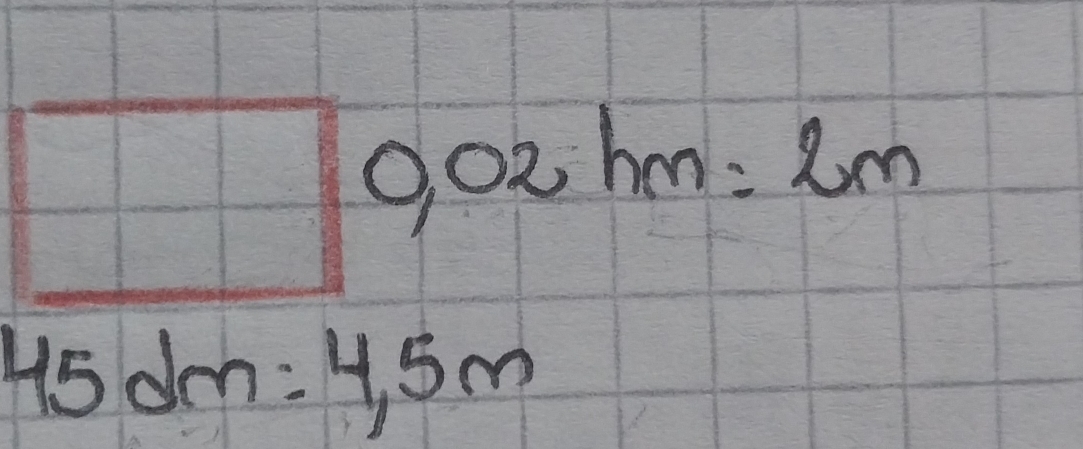 0,02 hm = 2m
45 dm = 4,5 m